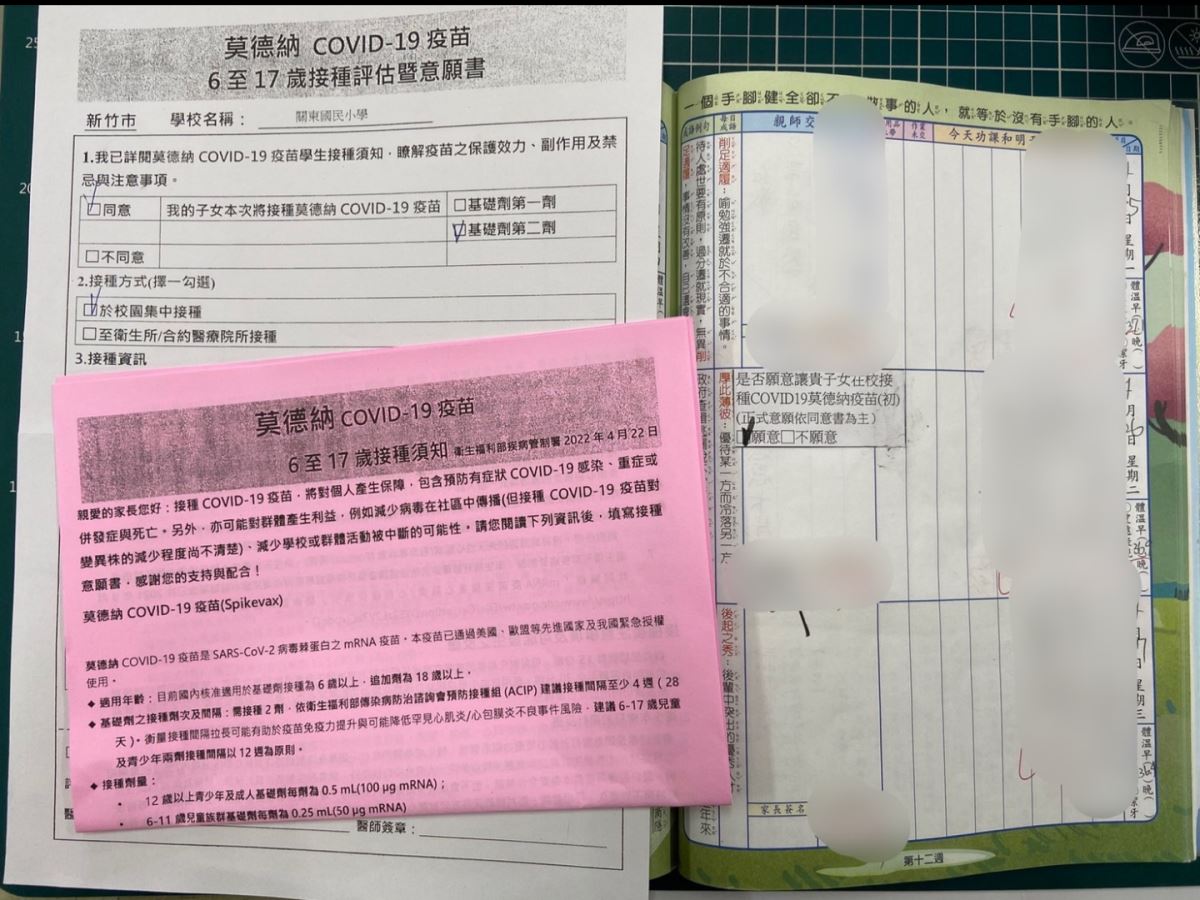 莫德納 COVID-19 疫苗
6 至 17 歲接種評估暨意願書
新竹市 學校名稱： 關東國民小學
1.我已詳閱莫德納 COVID-19 疫苗學生接種須知，瞭解疫苗之保護效力、副作用及禁
忌與注意事項。
☑同意 我的子女本次將接種莫德納 COVID-19 疫苗 □基礎劑第一劑
☑基礎劑第二劑
□不同意
2.接種方式(擇一勾選)
☑於校園集中接種
□至衛生所/合約醫療院所接種
3.接種資訊
醫師簽章：
莫德納 COVID-19 疫苗
6 至 17 歲接種須知 衛生福利部疾病管制署 2022 年 4 月 22 日
親愛的家長您好：接種 COVID-19 疫苗，將對個人產生保障，包含預防有症狀 COVID-19 感染、重症或
併發症與死亡。另外，亦可能對群體產生利益，例如減少病毒在社區中傳播(但接種 COVID-19 疫苗對
變異株的減少程度尚不清楚)、減少學校或群體活動被中斷的可能性。請您閱讀下列資訊後，填寫接種
意願書，感謝您的支持與配合！
莫德納 COVID-19 疫苗(Spikevax)
莫德納 COVID-19 疫苗是 SARS-CoV-2 病毒棘蛋白之 mRNA 疫苗。本疫苗已通過美國、歐盟等先進國家及我國緊急授權
使用。
◆ 適用年齡：目前國內核准適用於基礎劑接種為 6 歲以上，追加劑為 18 歲以上，
◆ 基礎劑之接種劑次及間隔：需接種 2 劑，依衛生福利部傳染病防治諮詢會預防接種組 (ACIP) 建議接種間隔至少 4 週（28
天）。衡量接種間隔拉長可能有助於疫苗免疫力提升與可能降低罕見心肌炎/心包膜炎不良事件風險，建議 6-17 歲兒童
及青少年兩劑接種間隔以 12 週為原則。
◆ 接種劑量：
• 12 歲以上青少年及成人基礎劑每劑為 0.5 mL(100 μg mRNA)；
• 6-11 歲兒童族群基礎劑每劑為 0.25 mL(50 μg mRNA)
一個手腳健全卻不 事的人，就等於沒有手腳的人。
成語例句 每日成語 親師交 作業未交 今天功課和明
削足適履：喻勉強遷就於不合適的事情。
待人處世要有原則，過分遷就現實，無異削
是否願意讓貴子女在校接
種COVID19莫德納疫苗(初)
(正式意願依同意書為主)
☑願意□不願意
厚此薄彼：優待某一方而冷落另一方
後起之秀：後輩中突出的優秀人才
星期一
體溫早
晚
潔牙
月
星期二
體溫早
星期三
體溫早
晚
潔牙
家長簽名
第十二週